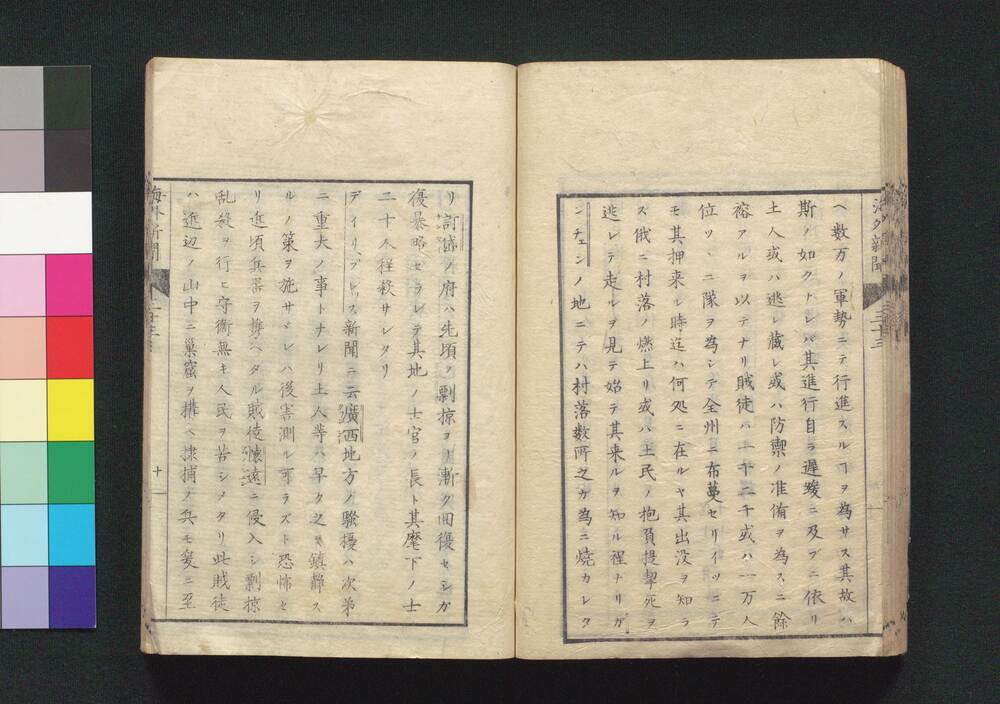 海外新聞
三十三
ヘ数万ノ軍勢ニテ行進スルヿヲ為サス其故ハ
斯ノ如クナレバ其進行自ラ遲緩ニ及ブニ依リ
土人或ハ逃レ蔵レ或ハ防禦ノ准備ヲ為スニ餘
裕アルヲ以テナリ賊徒ハ一千二千或ハ一万人
位ツヽニ隊ヲ為シテ全州ニ布蔓セリイツニテ
モ其押来ル時迄ハ何処ニ在ルヤ其出没ヲ知ラ
ス俄ニ村落ノ燃上リ或ハ土民ノ抱負提挈死ヲ
逃レテ走ルヲ見テ始テ其来ルヲ知ル程ナリガ
ンチェンノ地ニテハ村落数所之ガ為ニ焼カレタ
リノ府ハ先頃ノ剽掠ヨリ漸ク回復セシガ
復暴略セラレテ其地ノ士官ノ長ト其麾下ノ士
二十人程殺サレタリ
デイリ、プレス新聞ニ云廣西地方ノ騒擾ハ次第
ニ重大ノ事トナレリ土人等ハ早ク之ヲ鎮静ス
ルノ策ヲ施サヾレハ後害測ル可ラズト恐怖セ
リ近頃兵器ヲ携ヘタル賊徒懐遠ニ侵入シ剽掠
乱殺ヲ行ヒ守衛無キ人民ヲ苦シメタリ此賊徒
ハ近辺ノ山中ニ巣窟ヲ構ヘ逮捕ノ兵モ爰ニ至
海外新聞
十